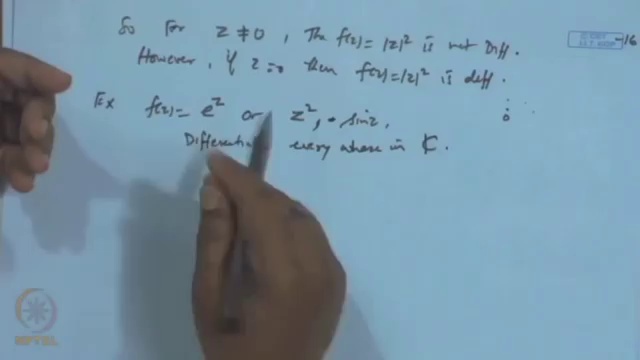 So For z ≠ 0, The f(z) = |z|² is not Diff.
However, if z = 0 then f(z) = |z|² is diff.
Ex f(z) = e^z or z², sin z,
Differenti every where in ℂ.
NPTEL